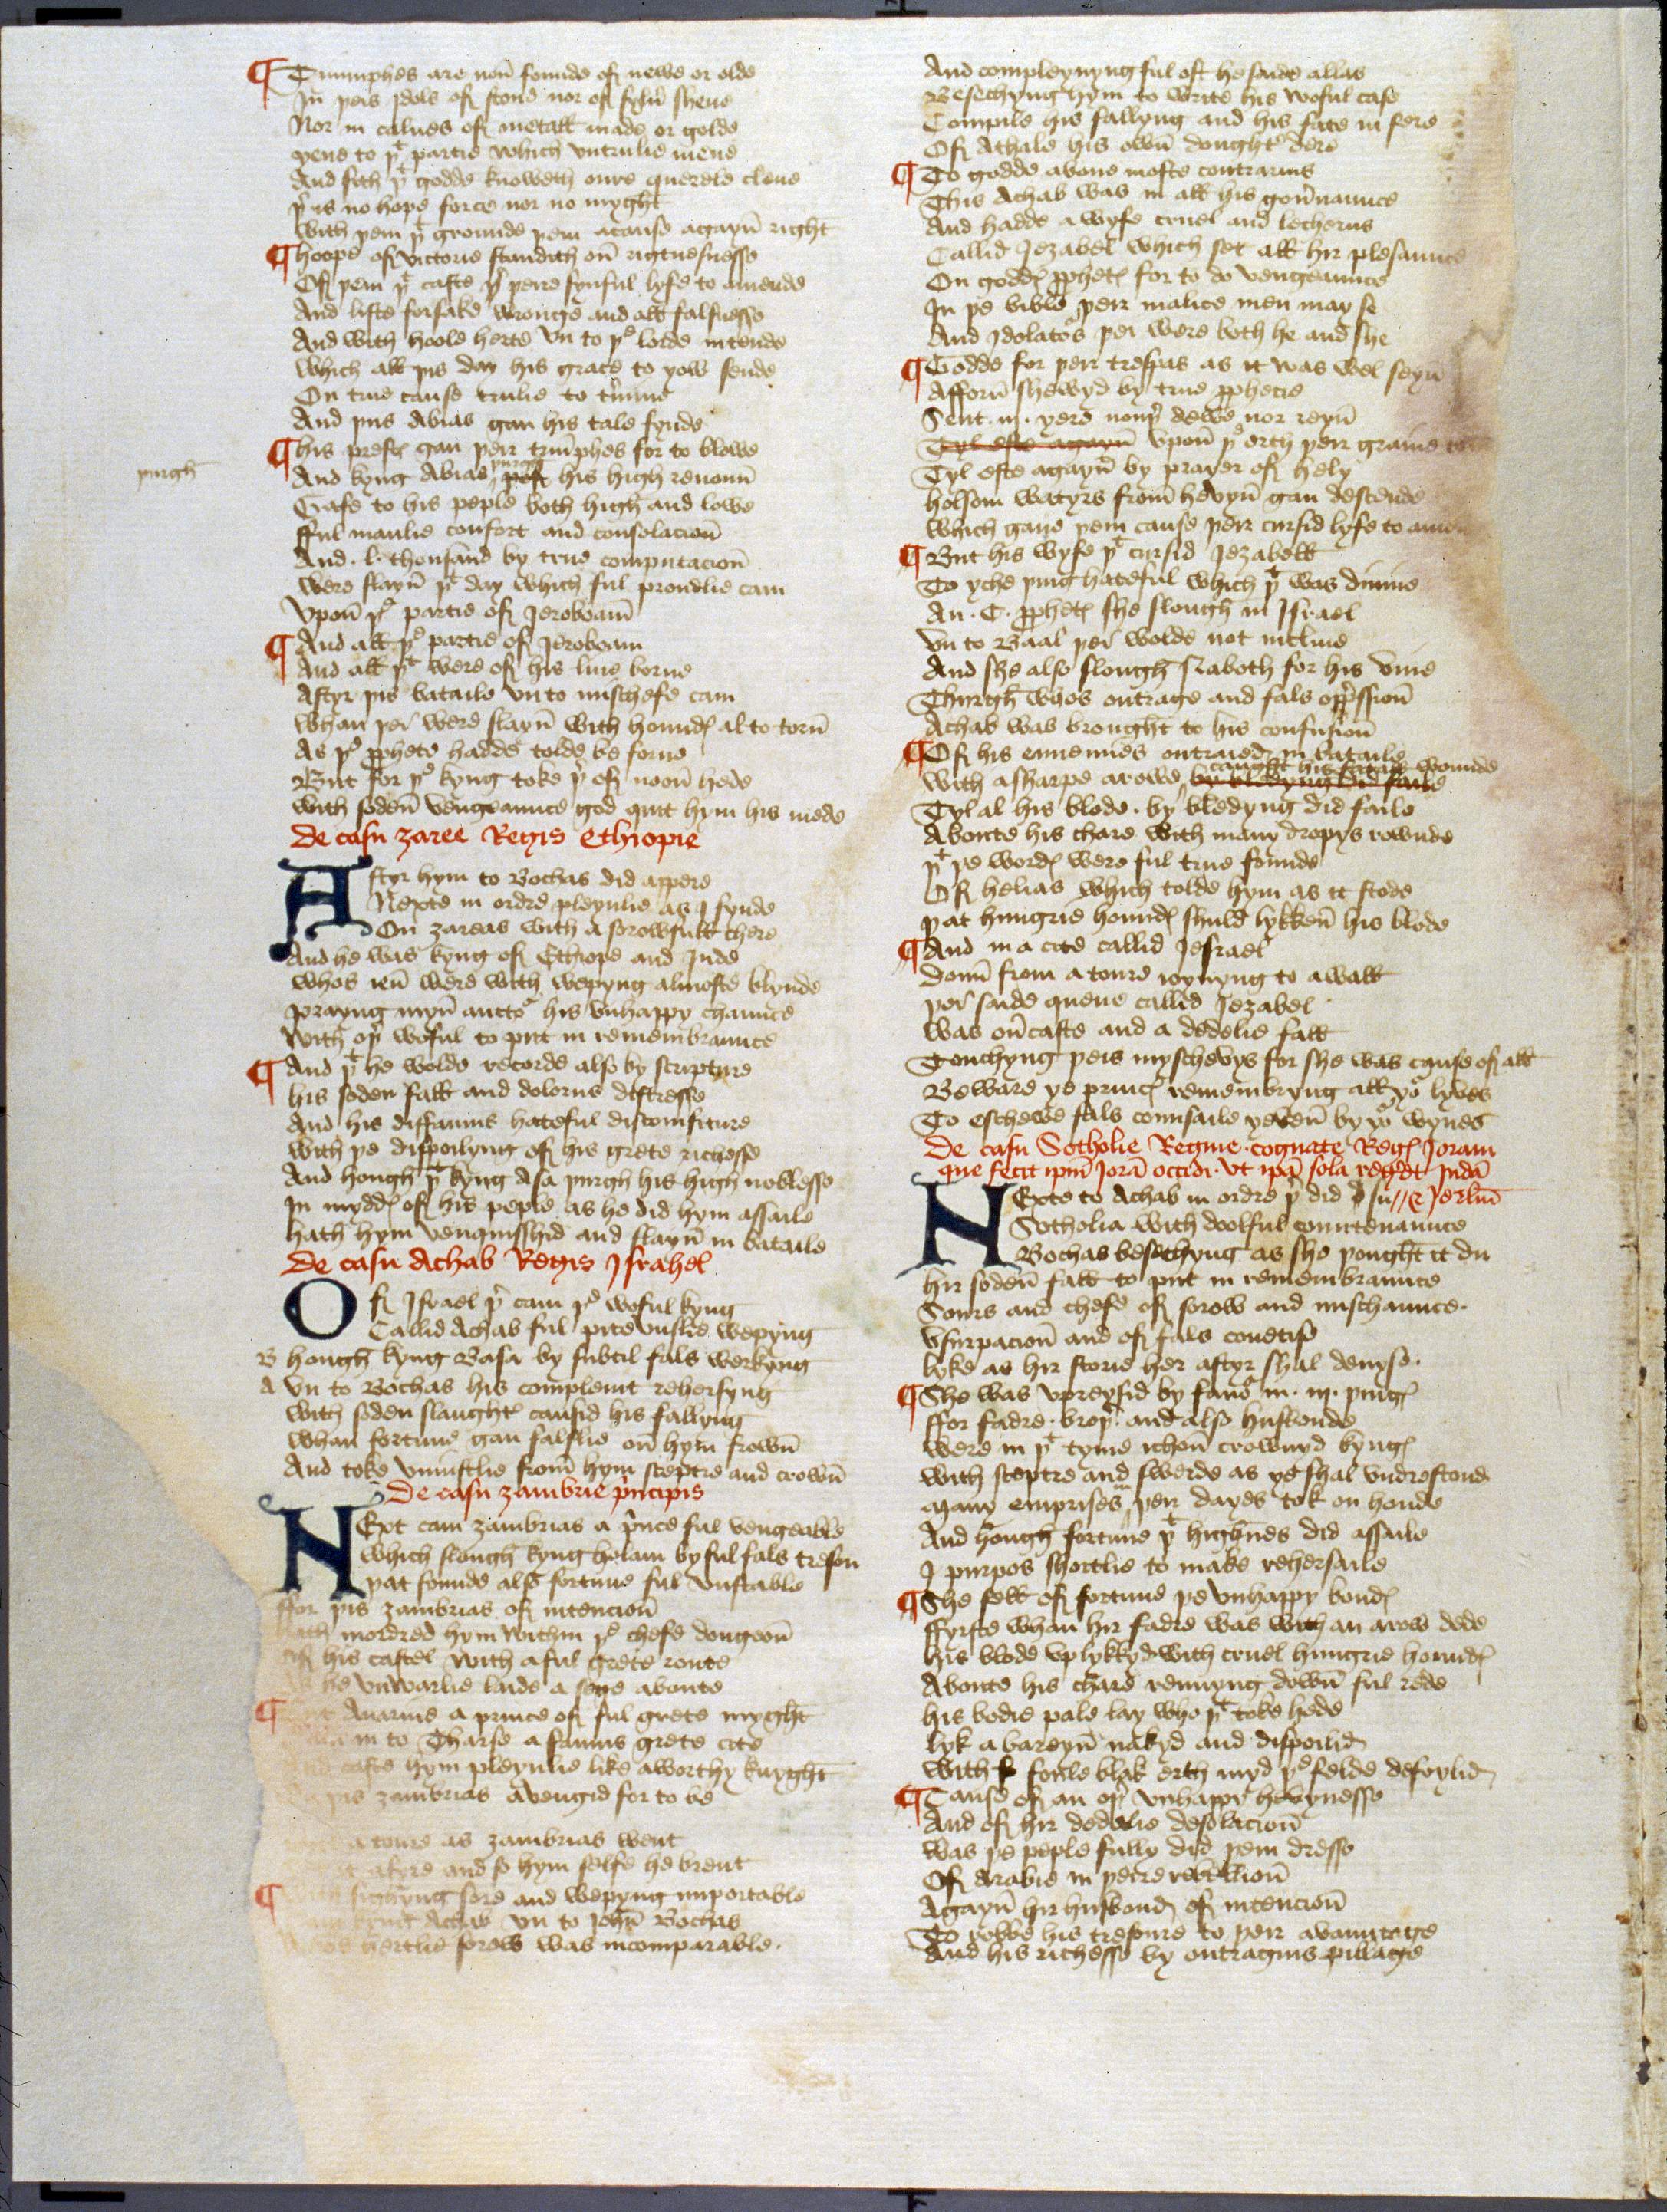 Triumphes are non founde of newe or olde
In þeis ydols of stone nor of syluer shene
Nor in calues of metall made or golde
yeue to þt partie which vntrulie mene
And sith þt godde knoweth oure querele clene
þer is no hope force nor no myght
With þem þt grounde þem acause agayn right
hoope of victorie standith on rigtuesnesse
Of þem þt caste þer peire synful lyfe to amende
And liste forsake wronge and all falsnesse
And with hoole herte vn to þe lorde intende
which all þis day his grace to yow sende
On true cause trulie to termine
And þus Abias gan his tale fynde
his prestes gan þeir trumphes for to blowe
And kyng Abias þurgh his high renoun
þurgh
Gafe to his peple both high and lowe
fful manlie confort and consolacion
And .l. thousand by true computacion
were slayn þt day which ful proudlie cam
Vpon þe partie of Jeroboam
And all þe partie of Jeroboam
And all þt were of his line borne
Aftyr þis bataile vn to mischefe cam
whan þei were slayn with houndes al to torn
As þe prophete hadde tolde be forne
But for þe kyng toke þer of noon hede
with soden vengeaunce god quit hym his mede
De casu zaree Regis Ethiopie
Aftyr hym to Bochas did appere
Nexte in ordre pleynlie as I fynde
On zareas with a sorowfull chere
And he was kyng of Ethiope and Inde
whos ien were with wepyng almoste blynde
prayng myn auctor his vnhappy chaunce
With oþer woful to put in remembraunce
And þt he wolde recorde also by scripture
his soden fall and dolorus distresse
And his diffamus hateful discomfiture
with þe dispoilyng of his grete richesse
And hough þt kyng Asa þurgh his high noblesse
In myddes of his peple as he did hym assaile
hath hym venquisshid and slayn in bataile
De casu Achab Regis Israhel
Of Israel þer cam þe woful kyng
Callid Achab ful pitevuslie wepyng
B hough kyng Basa by subtil fals werkyng
A vn to Bochas his compleint rehersyng
with soden slaughter causid his fallyng
whan fortune gan falslie on hym frown
And toke vniustlie from hym sceptre and crown
De casu zambrie principis
Next cam zambrias a prince ful vengeable
which slough kyng helam by ful fals treson
þat founde also fortune ful vnstable
ffor þis zambrias of intencion
hath mordred hym within þe chefe dongeon
of his castel with a ful grete route
As he vnwarlie laide a sege aboute
Amrine a prince of ful grete myght
in to Tharse a famus grete cite
caste hym pleynlie like a worthy knyght
þis zambrias avengid for to be
a toure as zambrias went
afyre and so hym selfe he brent
sighyng sore and wepyng importable
Achab vn to John Bochas
hertlie sorow was incomparable.
And compleynyng ful oft he saide allas
Besechyng hym to write his woful case
Compile his fallyng and his fate in fere
Of Athale his own doughter dere
To godde aboue moste contrarius
This Achab was in all his gouernaunce
And hadde a wyfe cruel and lecherus
Callid Jezabel which set all hir plesaunce
On goddes prophetes for to do vengeaunce
In þe bible þeir malice men may se
And ydolators þei were both he and she
Godde for þeir trespas as it was wel seyn
Afforn shewyd by true prophecie
Sent .iij. yere nouþer dewe nor reyn
Tyl efte agayn vpon þe erth þeir graine to
Tyl efte agayn by prayer of hely
holsom watyrs from hevyn gan descende
which gaue þem cause þeir cursid lyfe to amen
But his wyfe þt cursid Jezabell
To yche þing hateful which þt was diuine
An .C. prophetes she slough in Israel
vn to Baal þei wolde not incline
And she also slough Naboth for his vine
Thurgh whos outrage and fals oppression
Achab was brought to his confusion
Of his ennemies outraied in bataile
with a sharpe arowe caught his fatall wounde by bledyng did faile
Tyl al his blode by bledyng did faile
Aboute his chare with many dropys rownde
þt þe wordes were ful true founde
Of helias which tolde hym as it stode
þat hungrie houndes shuld lykken his blode
And in a cite callid Jesrael
doun from a toure ioynyng to a wall
þei saide quene callid Jezabel
was ouercaste and a dedelie fall
Touchyng þeis myschevys for she was cause of all
Beware ye princes remembryng all yor lyves
To eschewe fals counsaile yeven by yor wyves
De casu Sotholie Regine cognate Regis Joram
que fecit ipm Joram occidi vt ipa sola regeret Juda
& Jerlm
Nexte to Achab in ordre þer did su
Sotholia with doolful countenaunce
Bochas besechyng as she þought it du
hir soden fall to put in remembraunce
Sours and chefe of sorow and mischaunce.
vsurpacion and of fals couetise
lyke as hir storie her aftyr shal deuyse.
She was vpreysid by fauor in .iij. þinges
ffor fadre broþer and also husbonde
were in þt tyme ichon crownyd kynges
with sceptre and swerde as ye shal vndrestond
Many emprises in þeir dayes tok on honde
And hough fortune þt highnes did assaile
I purpos shortlie to make rehersaile
She felt of fortune þe vnhappy bondes
ffyrste whan hir fadre was with an arow dede
his blode vp lykkyd with cruel hungrie houndes
Aboute his chare rennyng down ful rede
his bodie pale lay who þt toke hede
lyk a bareyn nakyd and dispoilid
with foule blak erth myd þe felde defoylid
Cause of an oþer vnhappy hevynesse
And of hir dedelie desolacion
was þe peple fully did þem dresse
Of Arabie in þeire rebellion
Agayn hir husbond of intencion
To robbe his tresoure to þeir avauntage
And his richesse by outragius pillage